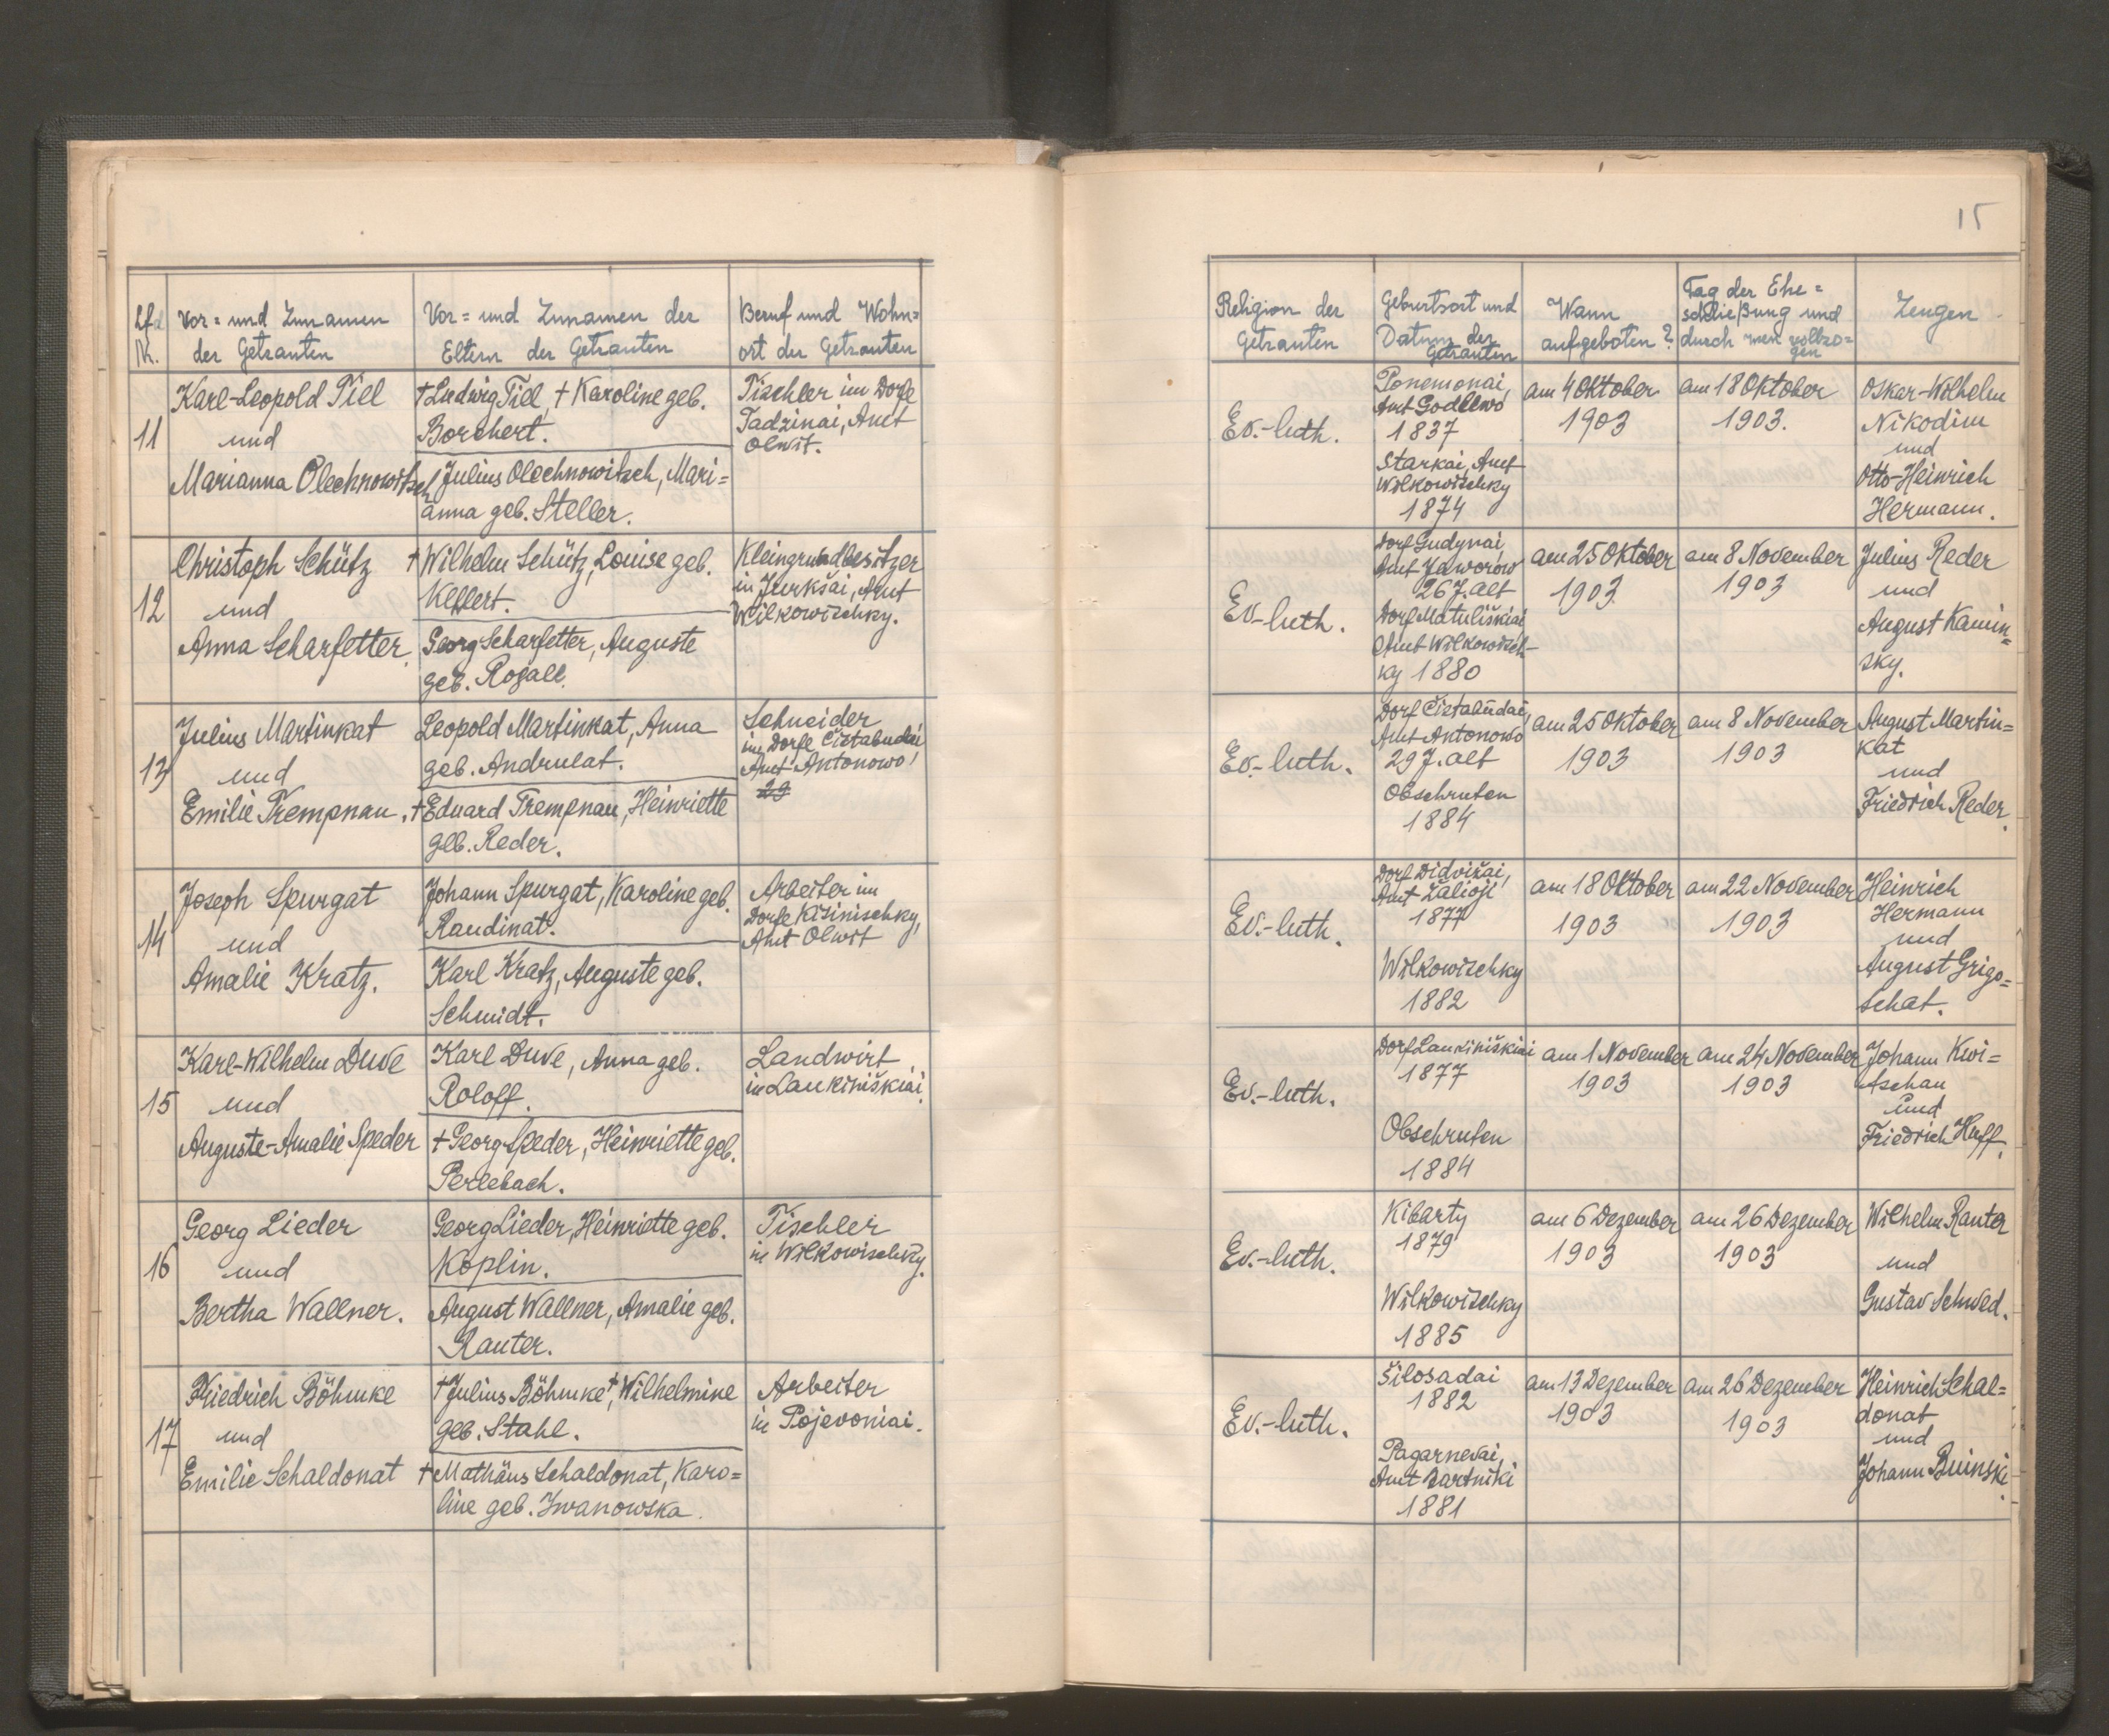 15
Lfd Nr.
Vor= und Zunamen
der Getrauten
Vor= und Zunamen der
Eltern der Getrauten
Beruf und Wohn=
ort der Getrauten
Religion der
Getrauten
Geburtsort und
Datum der
Getrauten
Wann
aufgeboten?
Tag der Ehe=
schließung und
durch wen vollzo=
gen
Zeugen
11
Karl-Leopold Tiel
und
Marianna Olechnowitsch
†Ludwig Tiel, †Karoline geb.
Borchert.
Julius Olechnowitsch, Mari=
anna geb. Steller.
Tischler im Dorfe
Tadzinai, Amt
Olwit.
Ev.-luth.
Ponemonai,
Amt Godlewo
1837
Starkai, Amt
Wilkowischky
1874
am 4 Oktober
1903
am 18 Oktober
1903.
Oskar-Wilhelm
Nikodim
und
Otto-Heinrich
Hermann.
12
Christoph Schütz
und
Anna Scharfetter.
†Wilhelm Schütz, Louise geb.
Kellert.
Georg Scharfetter, Auguste
geb. Rogall.
Kleingrundbesitzer
in Jurkšai, Amt
Wilkowischky.
Ev-luth.
Dorf Gudynai,
Amt Jaworow
26 J. alt
Dorf Matuliškiai
Amt Wilkowisch-
ky 1880
am 25 Oktober
1903
am 8 November
1903
Julius Reder
und
August Kamin=
sky.
13
Julius Martinkat
und
Emilie Trempnau.
Leopold Martinkat, Anna
geb. Andrulat.
†Eduard Trempnau, Heinriette
geb. Reder.
Schneider
im Dorfe Čistabudai
Amt Antonowo,
29
Ev.-luth.
Dorf Čistabūdai,
Amt Antonowo
29 J. alt
Obschruten
1884
am 25 Oktober
1903
am 8 November
1903
August Martin=
kat
und
Friedrich Reder.
14
Joseph Spurgat
und
Amalie Kratz.
Johann Spurgat, Karoline geb.
Raudinat.
Karl Kratz, Auguste geb.
Schmidt.
Arbeiter im
Dorfe Kisinischky,
Amt Olwit
Ev.-luth.
Dorf Didvišai,
Amt Žalioji
1877
Wilkowischky
1882
am 18 Oktober
1903
am 22 November
1903
Heinrich
Hermann
und
August Grigo=
schat.
15
Karl-Wilhelm Duve
und
Auguste-Amalie Speder
Karl Duve, Anna geb.
Roloff.
†Georg Speder, Heinriette geb.
Perlebach.
Landwirt
in Laukiniškiai.
Ev.-luth.
Dorf Laukiniškiai
1877
Obschruten
1884
am 1 November
1903
am 24 November
1903
Johann Kwi=
tschau
und
Friedrich Huff.
16
Georg Lieder
und
Bertha Wallner.
Georg Lieder, Heinriette geb.
Koplin.
August Wallner, Amalie geb.
Rauter.
Tischler
in Wilkowischky.
Ev.-luth.
Kibarty
1879
Wilkowischky
1885
am 6 Dezember
1903
am 26 Dezember
1903
Wilhelm Rauter
und
Gustav Schwed.
17
Friedrich Böhmke
und
Emilie Schaldonat
†Julius Böhmke, †Wilhelmine
geb. Stahl.
†Mathäus Schaldonat, Karo=
line geb. Iwanowska.
Arbeiter
in Pojevoniai.
Ev.-luth.
Šilosadai
1882
Pagarnevai,
Amt Bartniki
1881
am 13 Dezember
1903
am 26 Dezember
1903
Heinrich Schal=
donat
und
Johann Buinski.